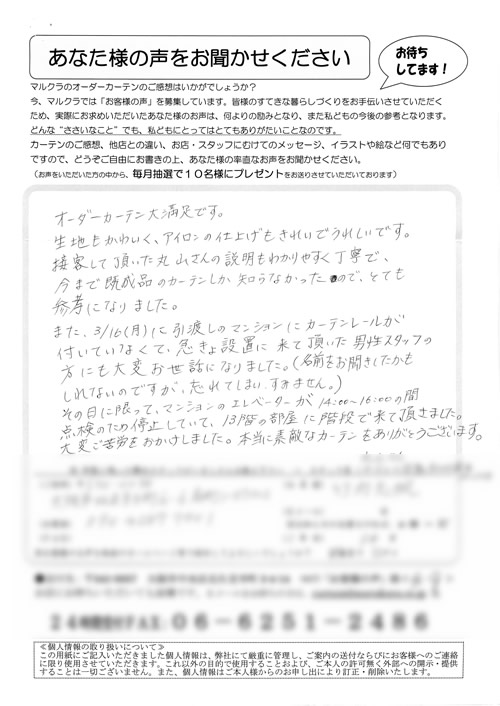 あなた様の声をお聞かせください
お待ち
してます!
マルクラのオーダーカーテンのご感想はいかがでしょうか?
今、マルクラでは「お客様の声」を募集しています。皆様のすてきな暮らしづくりをお手伝いさせていただく
ため、実際にお求めいただいたあなた様のお声は、何よりの励みとなり、また私どもの今後の参考となります。
どんな“ささいなこと”でも、私どもにとってはとてもありがたいことなのです。
カーテンのご感想、他店との違い、お店・スタッフにむけてのメッセージ、イラストや絵など何でもあり
ですので、どうぞご自由にお書きの上、あなた様の率直なお声をお聞かせください。
(お声をいただいた方の中から、毎月抽選で10名様にプレゼントをお送りさせていただいております)
オーダーカーテン大満足です。
生地もかわいく、アイロンの仕上げもきれいでうれしいです。
接客して頂いた丸山さんの説明もわかりやすく丁寧で、
今まで既成品のカーテンしか知らなかったので、とても
参考になりました。
また、3/16(月)に引渡しのマンションにカーテンレールが
付いていなくて、急きょ設置に来て頂いた男性スタッフの
方にも大変お世話になりました。(名前をお聞きしたかも
しれないのですが、忘れてしまい、すみません。)
その日に限って、マンションのエレベーターが14:00~16:00の間
点検のため停止していて、13階の部屋に階段で来て頂きました。
大変ご苦労をおかけしました。本当に素敵なカーテンをありがとうございます。
24時間受付FAX:06-6251-2486
≪個人情報の取り扱いについて≫
この用紙にご記入いただきました個人情報は、弊社にて厳重に管理し、ご案内の送付ならびにお客様へのご連絡
に限り使用させていただきます。これ以外の目的で使用することおよび、ご本人の許可無く外部への開示・提供
することは一切ございません。また、個人情報はご本人様からのお申し出により訂正・削除いたします。